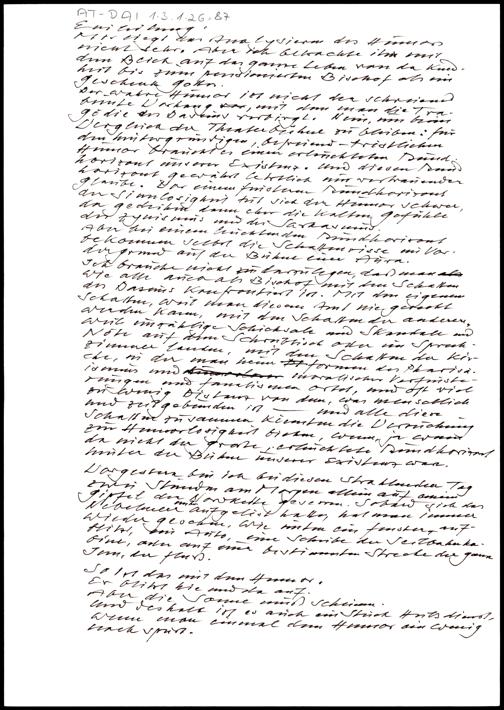 AT-DAI 1.3.1.26.87
Einleitung!
Mir liegt das Analysieren des Humors
nicht sehr. Aber ich betrachte ihn mit
dem Blick auf das ganze Leben von der Kind-
heit bis zum pensionierten Bischof als ein
Geschenk Gottes.
Der wahre Humor ist nicht der schreiend
bunte Vorhang, mit dem man die Tra-
gödie des Daseins verbirgt. Nein, um beim
Vergleich der Theaterbühne zu bleiben: für
den hintergründigen, befreiend-tröstlichen
Humor braucht es einen erleuchteten Rund-
horizont unserer Existenz. Und diesen Rund-
horizont gewährt letztlich nur vertrauender
Glaube. Vor einem finsteren Rundhorizont
der Sinnlosigkeit tut sich der Humor schwer,
da gedeihen dann eher die kalten Gefühle
der Zynismus und der Sarkasmus.
Aber bei einem leuchtenden Rundhorizont
bekommen selbst die Schattenrisse im Vor-
dergrund auf der Bühne eine Aura.
Ich brauche nicht zu betonen, daß man
wie alle auch als Bischof mit den Schatten
des Daseins konfrontiert ist. Mit dem eigenen
Schatten, weil man diesem Amt nie gerecht
werden kann, mit den Schatten der anderen,
weil unzählige Schicksale und Skandale und
Nöte auf dem Schreibtisch oder im Sprech-
zimmer landen, mit den Schatten der Kir-
che, in der man neue Formen des Pharisä-
ismus und moralischen Verfinste-
rungen und Fanatismen ortet, und oft viel
zu wenig Distanz von dem, was menschlich
und zeitgebunden ist — und alle diese
Schatten zusammen könnten die Versuchung
zur Humorlosigkeit bieten, wenn
da nicht der große, erleuchtete Rundhorizont
hinter der Bühne unserer Existenz war.
Vorgestern bin ich bei diesem strahlenden Tag
zwei Stunden am Morgen allein auf einem
Gipfel der Nordkette gesessen. Sobald sich das
Nebelmeer aufgelöst hatte, hat man immer
wieder gesehen, wie unten ein Fenster auf-
blitzt, ein Auto, eine Scheibe der Seilbahnka-
bine, oder auf einer bestimmten Strecke der ganze
Inn, der Fluß.
So ist das mit dem Humor.
Er blitzt hie und da auf.
Aber die Sonne muß scheinen.
Und deshalb ist es auch ein Stück Heilsdienst,
wenn man einmal dem Humor ein wenig
nach spürt.